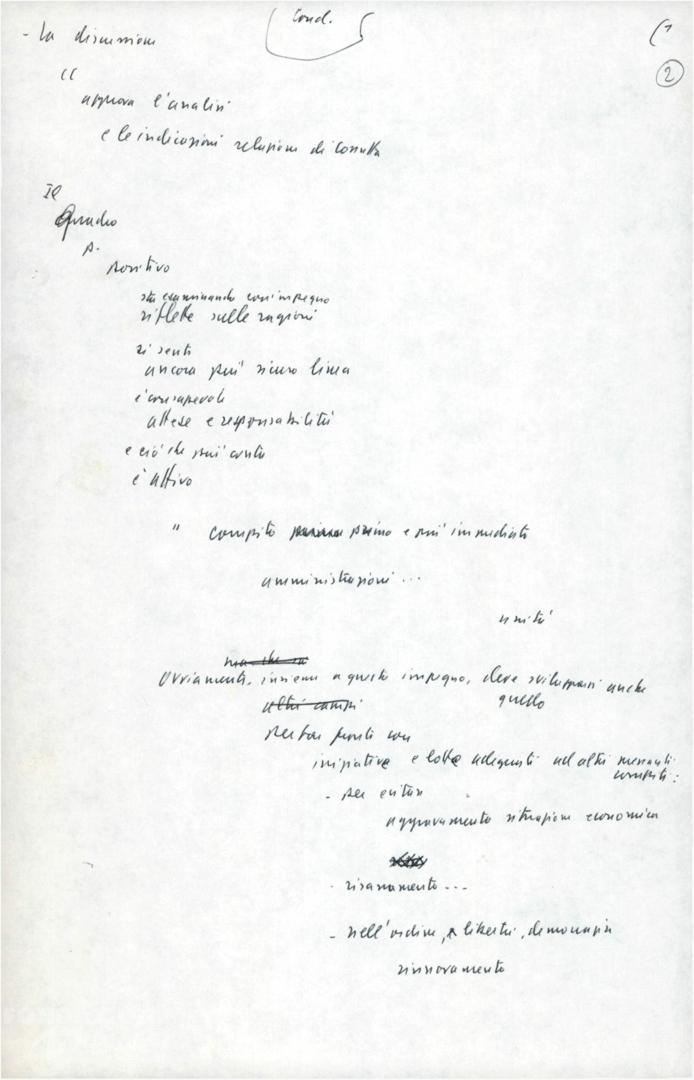 Concl.
(1
2
- La discussione
((
approva l'analisi
e le indicazioni relazione di Cossutta
Il
Quadro
p.
positivo
sta esaminando con impegno
riflette sulle ragioni
si sente
ancora più sicuro linea
è consapevole
attese e responsabilità
e ciò che più conta
è attivo
" compito primo e più immediato
amministrazioni ...
unità
ma che su
Ovviamente, insieme a questo impegno, deve svilupparsi anche
quello
altri campi
per far fronte con
iniziative e lotte adeguate ad altri pressanti
compiti:
- per evitare
aggravamento situazione economica
- risanamento ...
- nell'ordine, libertà, democrazia
rinnovamento